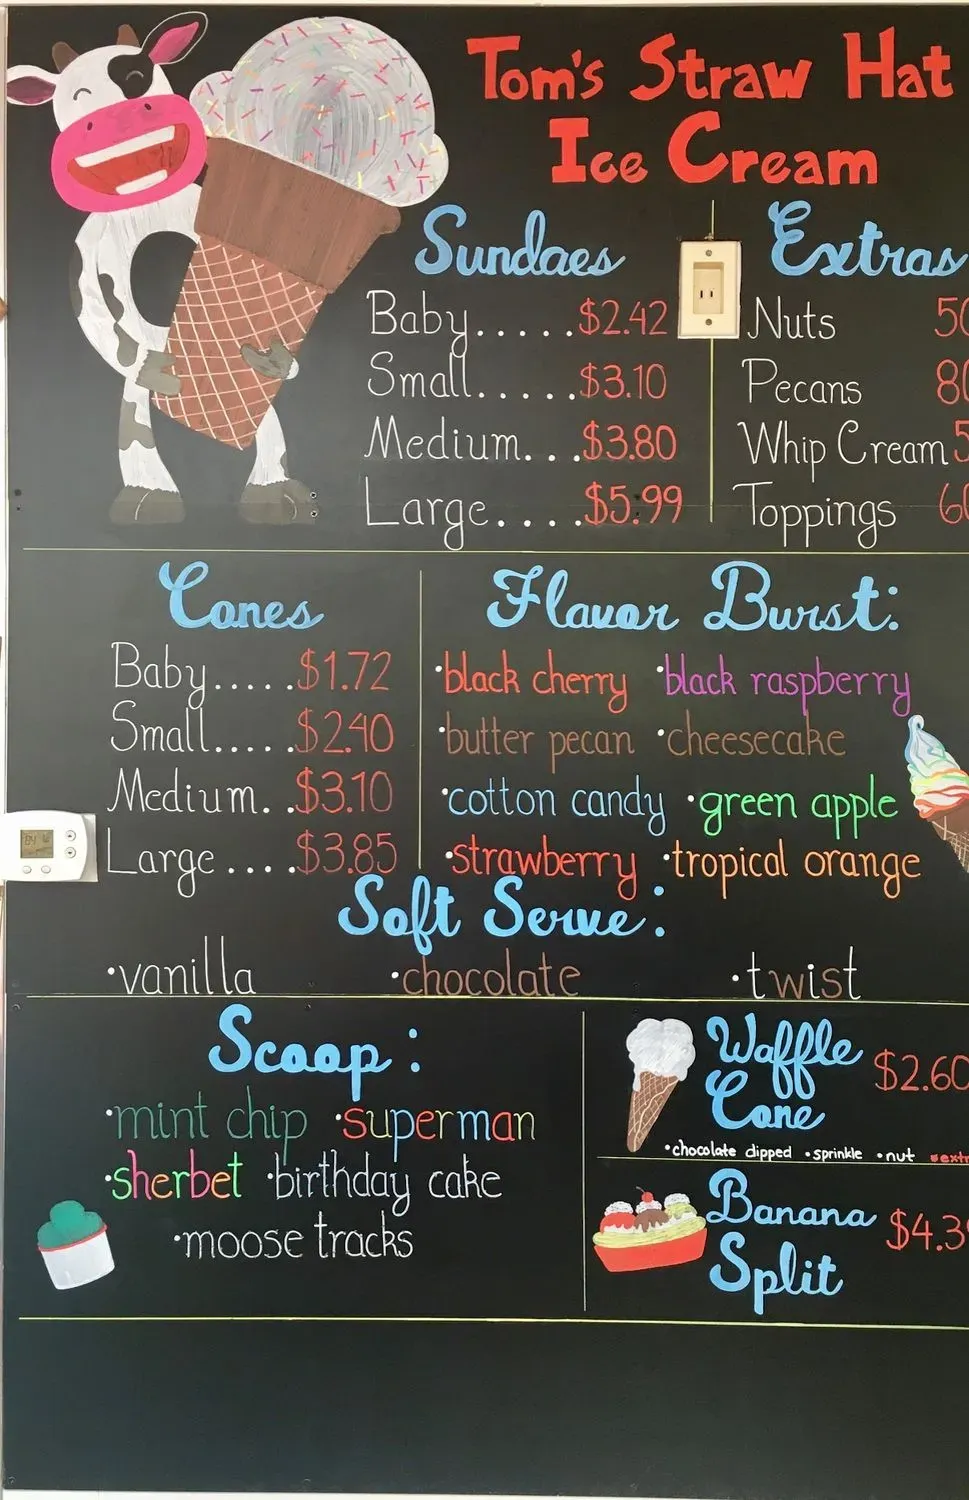 Tom's Straw Hat
Ice Cream
Sundaes
Baby.....$2.42
Small.....$3.10
Medium...$3.80
Large....$5.99
Extras
Nuts
Pecans
Whip Cream
Toppings
Cones
Baby.....$1.72
Small.....$2.40
Medium..$3.10
Large....$3.85
Flavor Burst:
·black cherry ·black raspberry
·butter pecan ·cheesecake
·cotton candy ·green apple
·strawberry ·tropical orange
Soft Serve:
·vanilla ·chocolate ·twist
Scoop:
·mint chip ·superman
·sherbet ·birthday cake
·moose tracks
Waffle
Cone
$2.60
·chocolate dipped ·sprinkle ·nut
Banana
Split